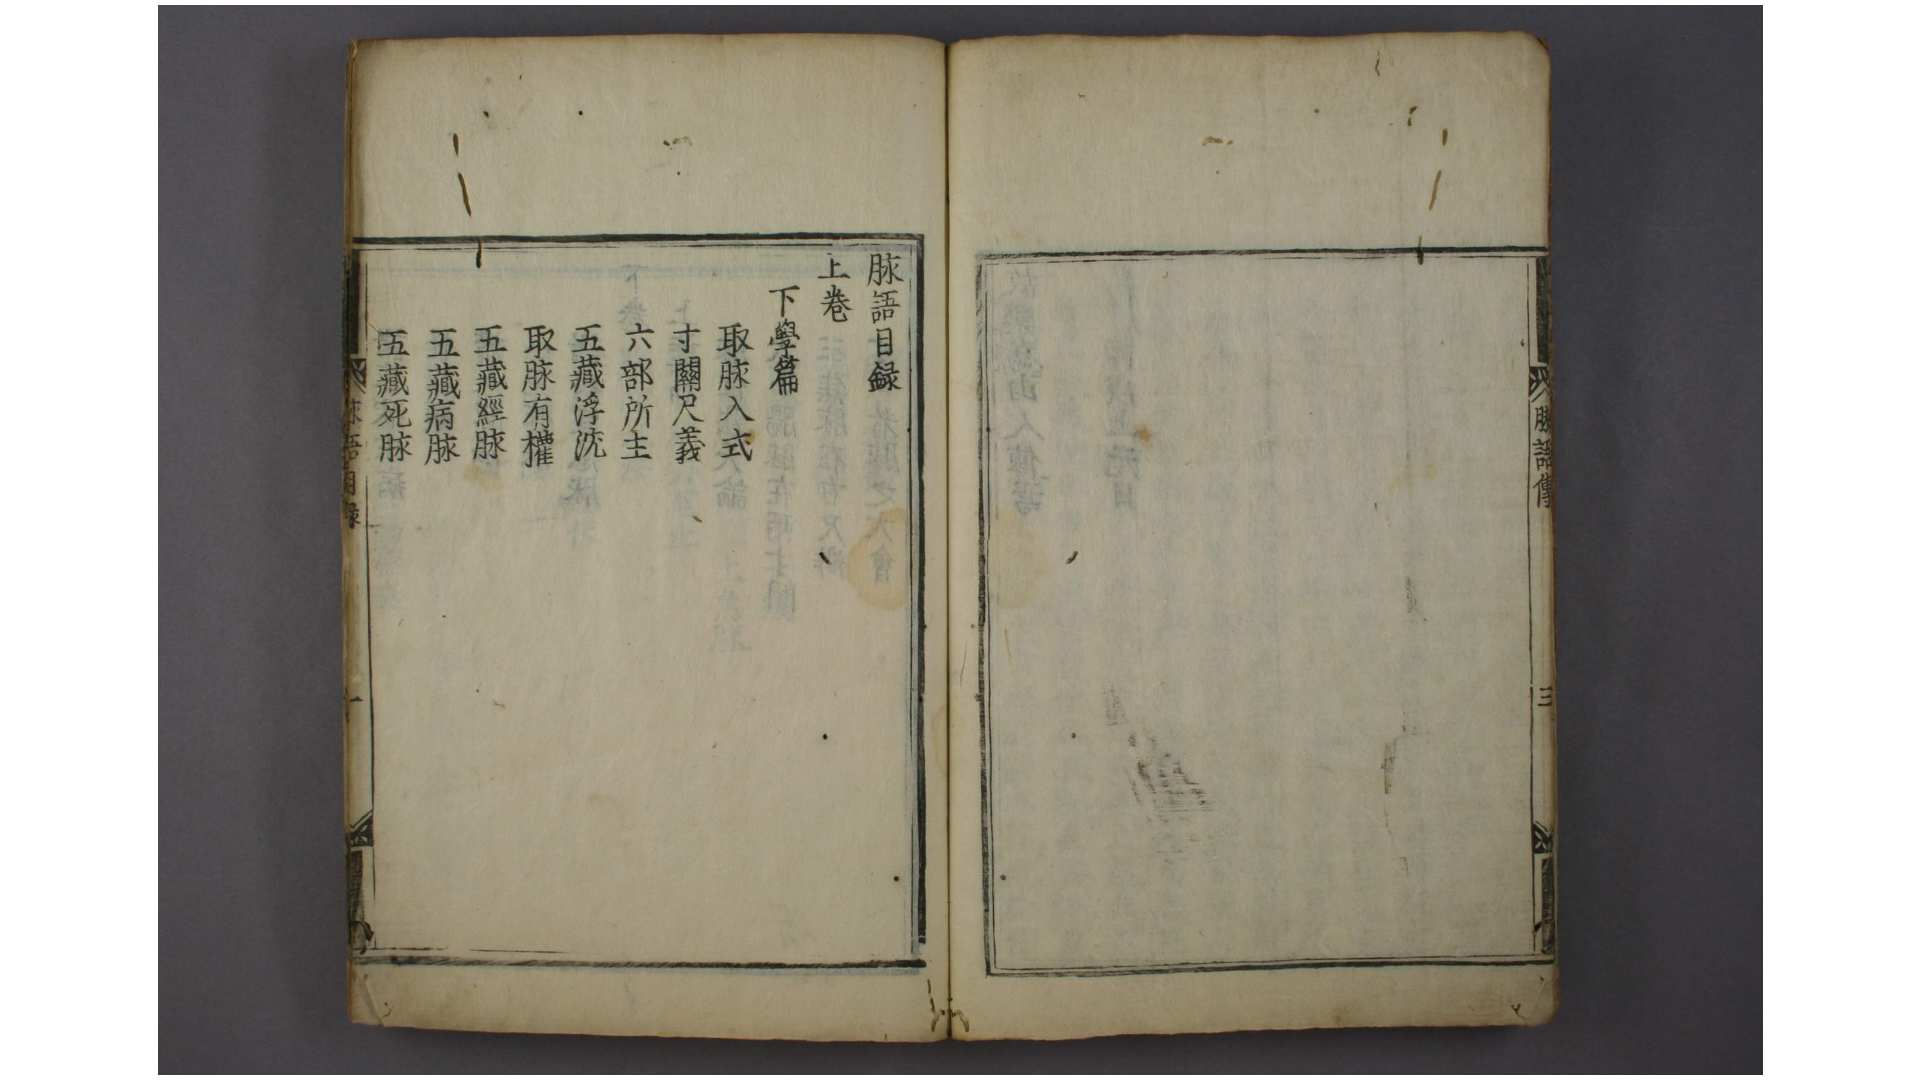 脉語傳
三
脉語目録
上卷
下學篇
取脉入式
寸關尺義
六部所主
五藏浮沈
取脉有權
五藏經脉
五藏病脉
五藏死脉
脉語目録
一